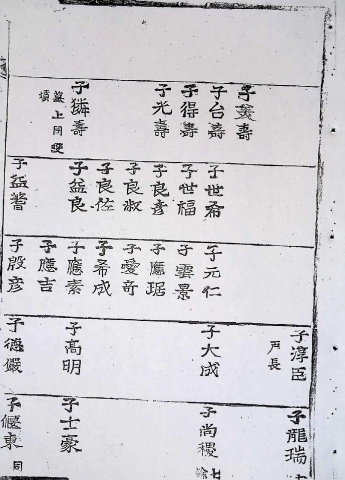 子台壽
子得壽
子光壽
子獜壽
墓上同
子世希
子世福
子良彦
子良淑
子良佐
子益良
子益蓍
子元仁
子雲景
子應琚
子愛奇
子希成
子應素
子應吉
子殷彦
子淳臣
戸長
子大成
子高明
子德儼
子龍瑞
子尚稷
子士豪
同